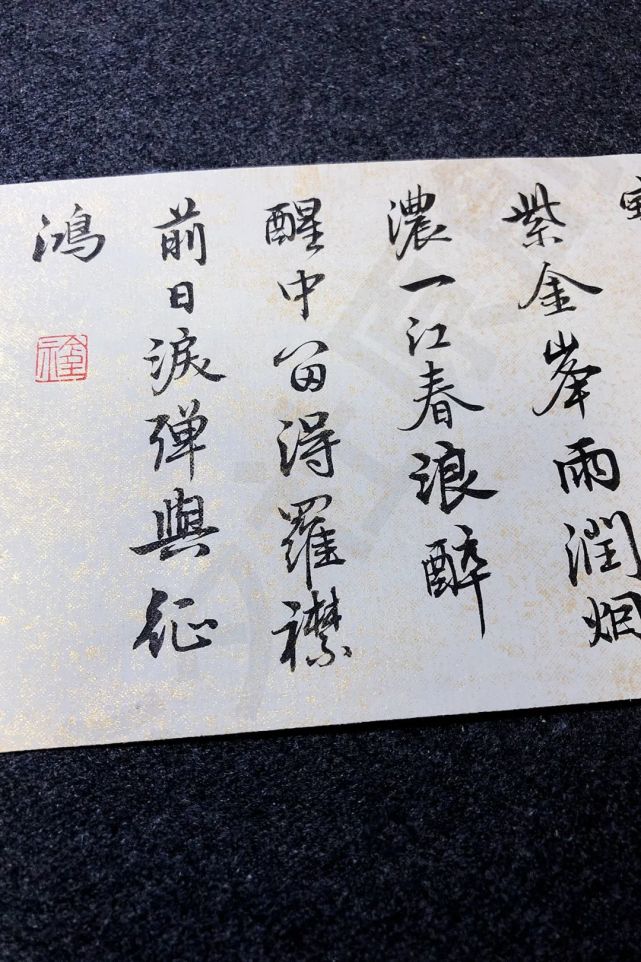 紫金峯雨潤烟
濃一江春浪醉
醒中留得羅襟
前日淚弾與征
鴻